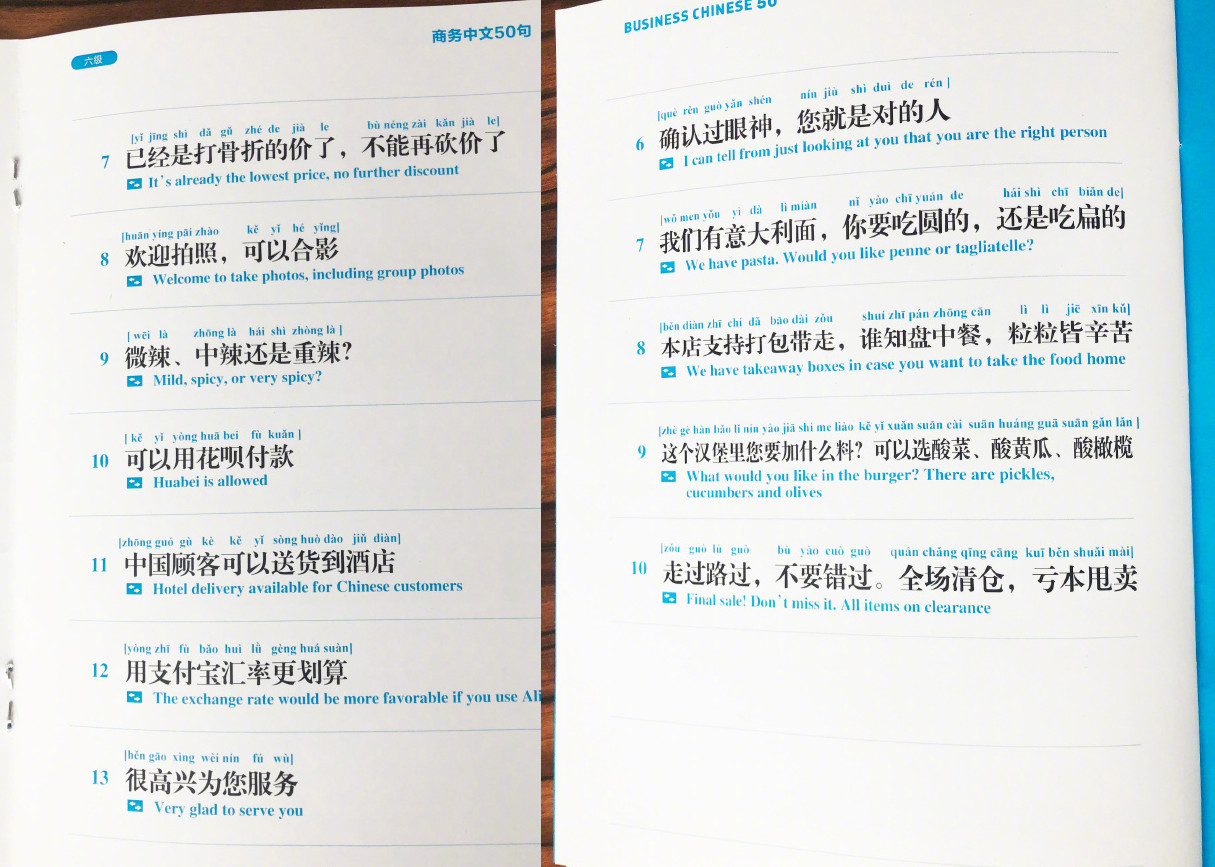 商务中文50句
六级
[yǐ jīng shì dǎ gǔ zhé de jià le bù néng zài kǎn jià le]
7 已经是打骨折的价了，不能再砍价了
It's already the lowest price, no further discount
[huān yíng pāi zhào kě yǐ hé yǐng]
8 欢迎拍照，可以合影
Welcome to take photos, including group photos
[wēi là zhōng là hái shì zhòng là]
9 微辣、中辣还是重辣？
Mild, spicy, or very spicy?
[kě yǐ yòng huā bei fù kuǎn]
10 可以用花呗付款
Huabei is allowed
[zhōng guó gù kè kě yǐ sòng huò dào jiǔ diàn]
11 中国顾客可以送货到酒店
Hotel delivery available for Chinese customers
[yòng zhī fù bǎo huì lǜ gèng huá suàn]
12 用支付宝汇率更划算
The exchange rate would be more favorable if you use Ali
[hěn gāo xìng wèi nín fú wù]
13 很高兴为您服务
Very glad to serve you
BUSINESS CHINESE 50
[què rèn guò yǎn shén nín jiù shì duì de rén]
6 确认过眼神，您就是对的人
I can tell from just looking at you that you are the right person
[wǒ men yǒu yì dà lì miàn nǐ yào chī yuán de hái shì chī biǎn de]
7 我们有意大利面，你要吃圆的，还是吃扁的
We have pasta. Would you like penne or tagliatelle?
[běn diàn zhī chí dǎ bāo dài zǒu shuí zhī pán zhōng cān lì lì jiē xīn kǔ]
8 本店支持打包带走，谁知盘中餐，粒粒皆辛苦
We have takeaway boxes in case you want to take the food home
[zhè gè hàn bǎo lǐ nín yào jiā shí me liào kě yǐ xuǎn suān cài suān huáng guā suān gǎn lǎn]
9 这个汉堡里您要加什么料？可以选酸菜、酸黄瓜、酸橄榄
What would you like in the burger? There are pickles,
cucumbers and olives
[zǒu guò lù guò bù yào cuò guò quán chǎng qīng cāng kuī běn shuǎi mài]
10 走过路过，不要错过。全场清仓，亏本甩卖
Final sale! Don't miss it. All items on clearance